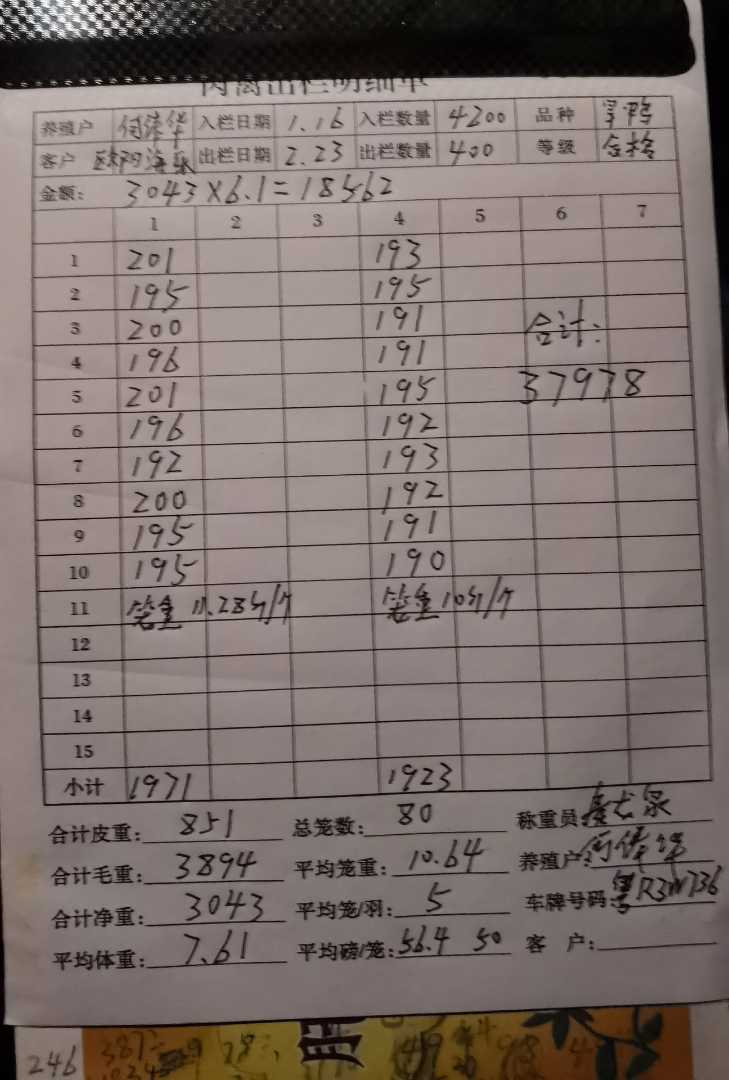 肉禽出栏明细单
养殖户 入栏日期 1.16 入栏数量 4200 品种
客户 出栏日期 2.23 出栏数量 400 等级 合格
金额: 3043×6.1=18562
1 2 3 4 5 6 7
1 201 193
2 195 195
3 200 191 合计:
4 196 191
5 201 195 37978
6 196 192
7 192 193
8 200 192
9 195 191
10 195 190
11 笼重 11.28斤/个 笼重 10斤/个
12
13
14
15
小计 1971 1923
合计皮重: 851 总笼数: 80 称重员:
合计毛重: 3894 平均笼重: 10.64 养殖户:
合计净重: 3043 平均笼/羽: 5 车牌号码: 粤R3W736
平均体重: 7.61 平均磅/笼: 56.4 50 客 户:
246 387